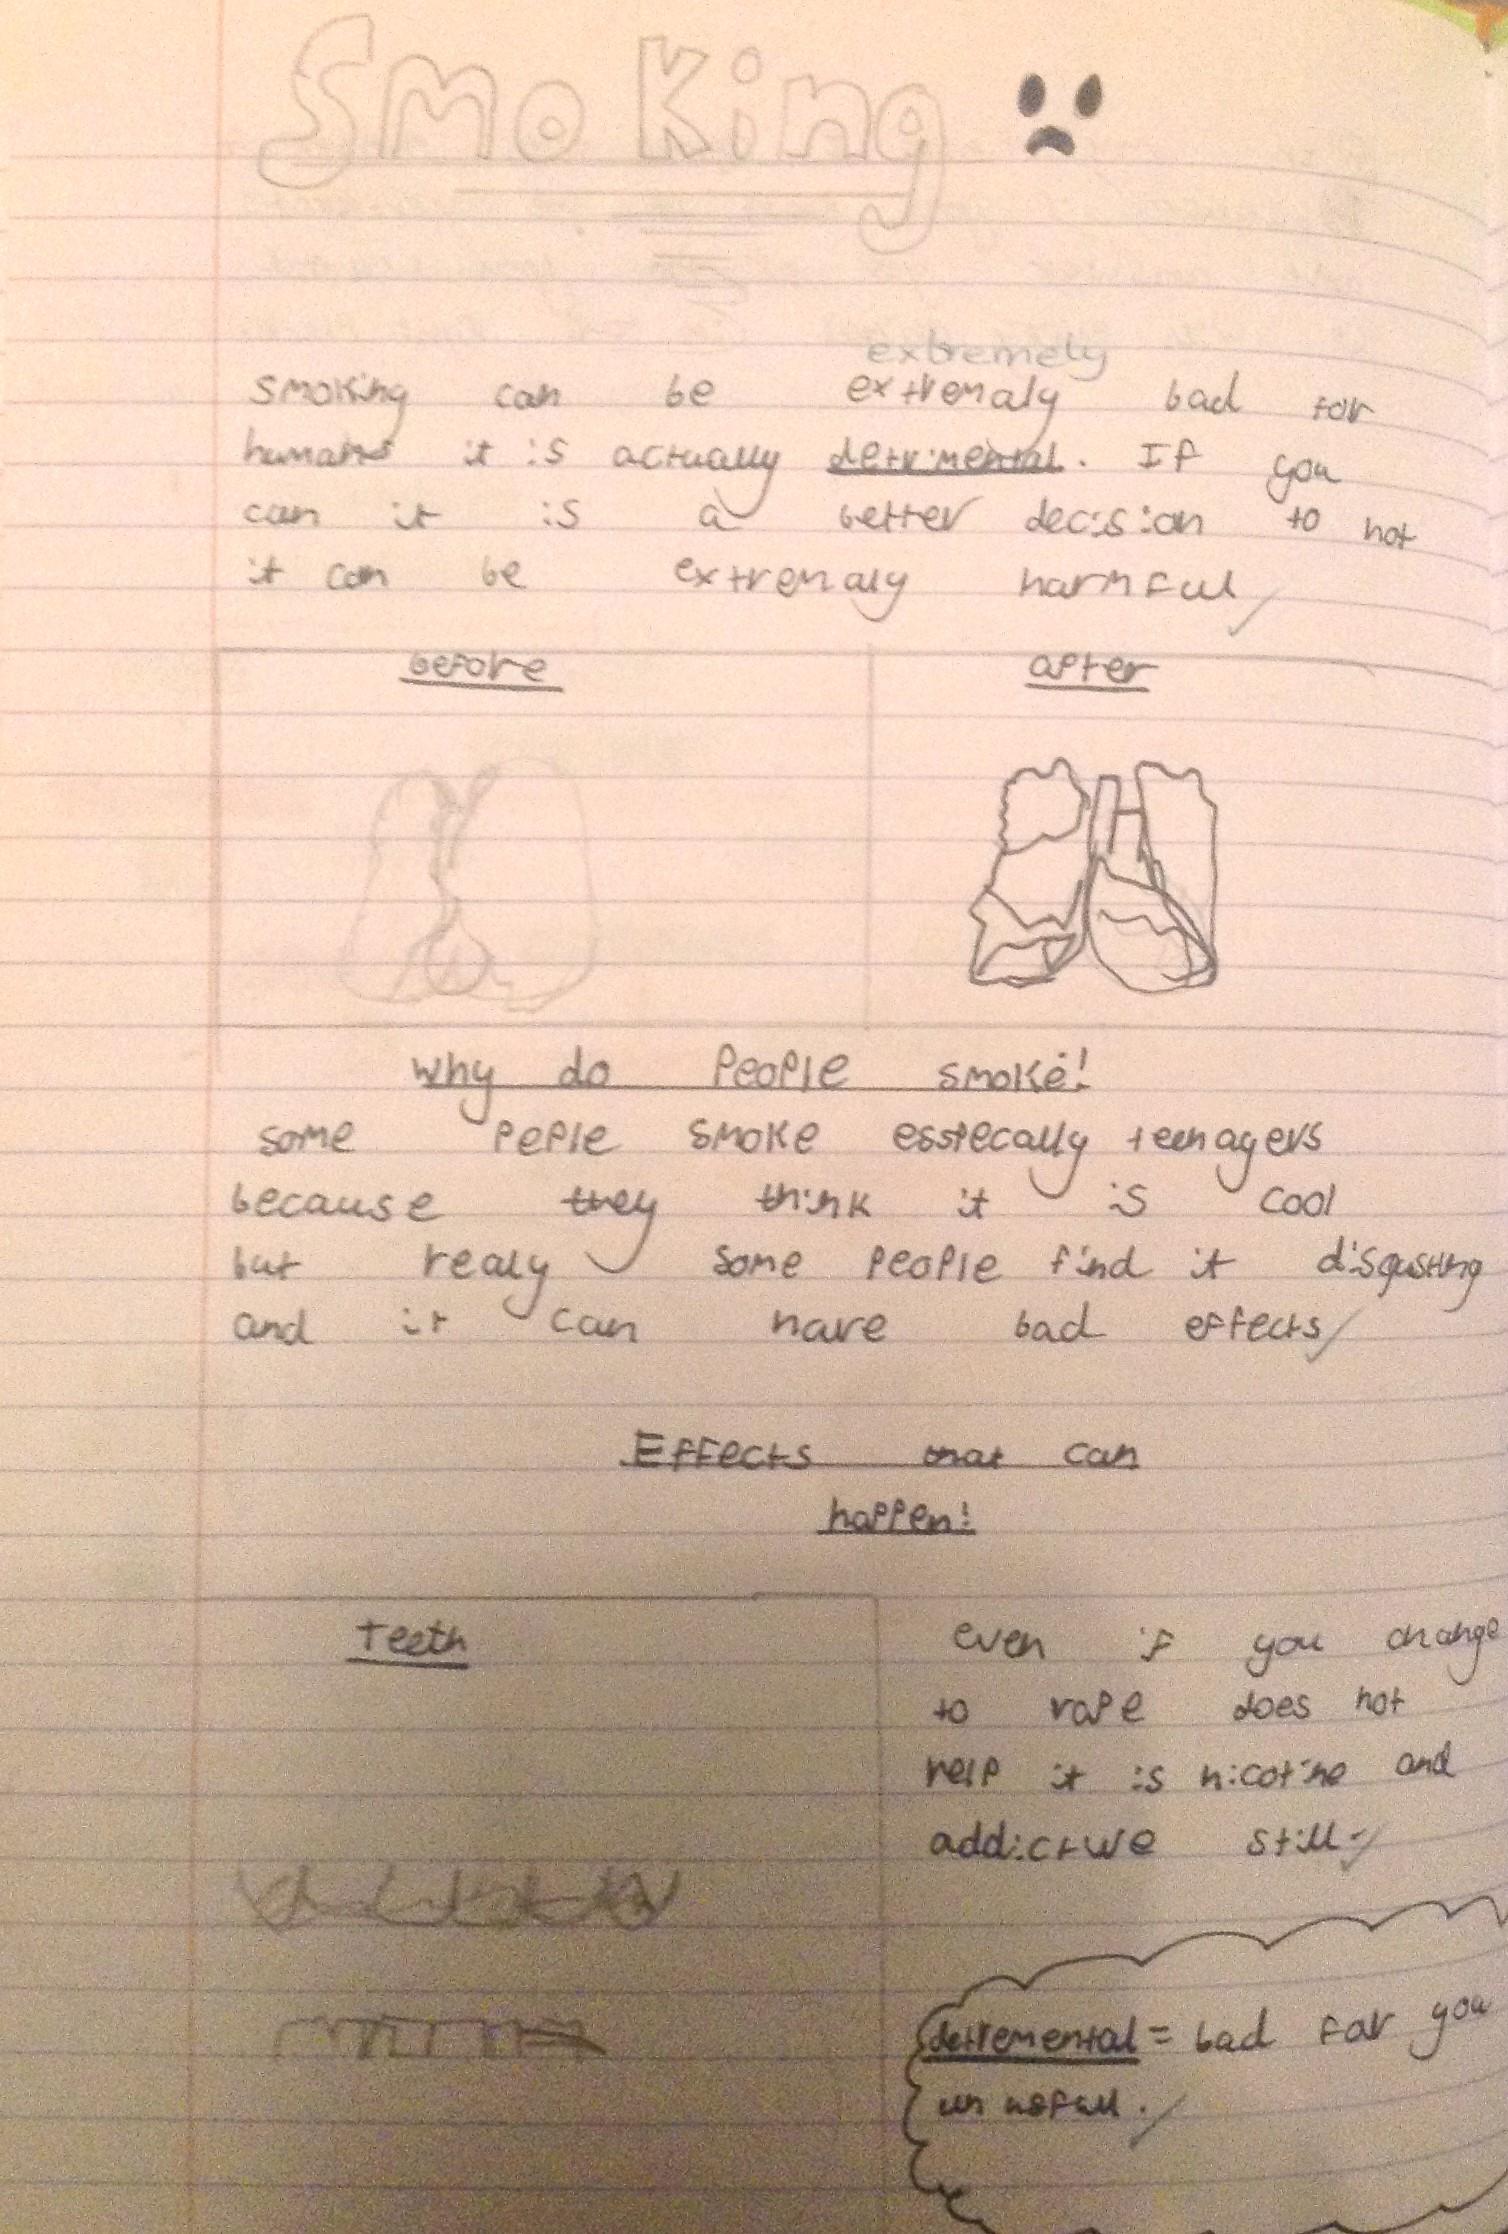 Smoking
extremely
smoking can be extremaly bad for
humans it is actually detrimental. If you
can it is a better decision to not
it can be extremaly harmful
before
after
why do people smoke!
some peple smoke esspecally teenagers
because they think it is cool
but realy some people find it disgusting
and it can have bad effects
Effects that can
happen!
Teeth
even if you change
to vape does not
help it is nicotine and
addictive still.
detremental = bad for you
un usfull.